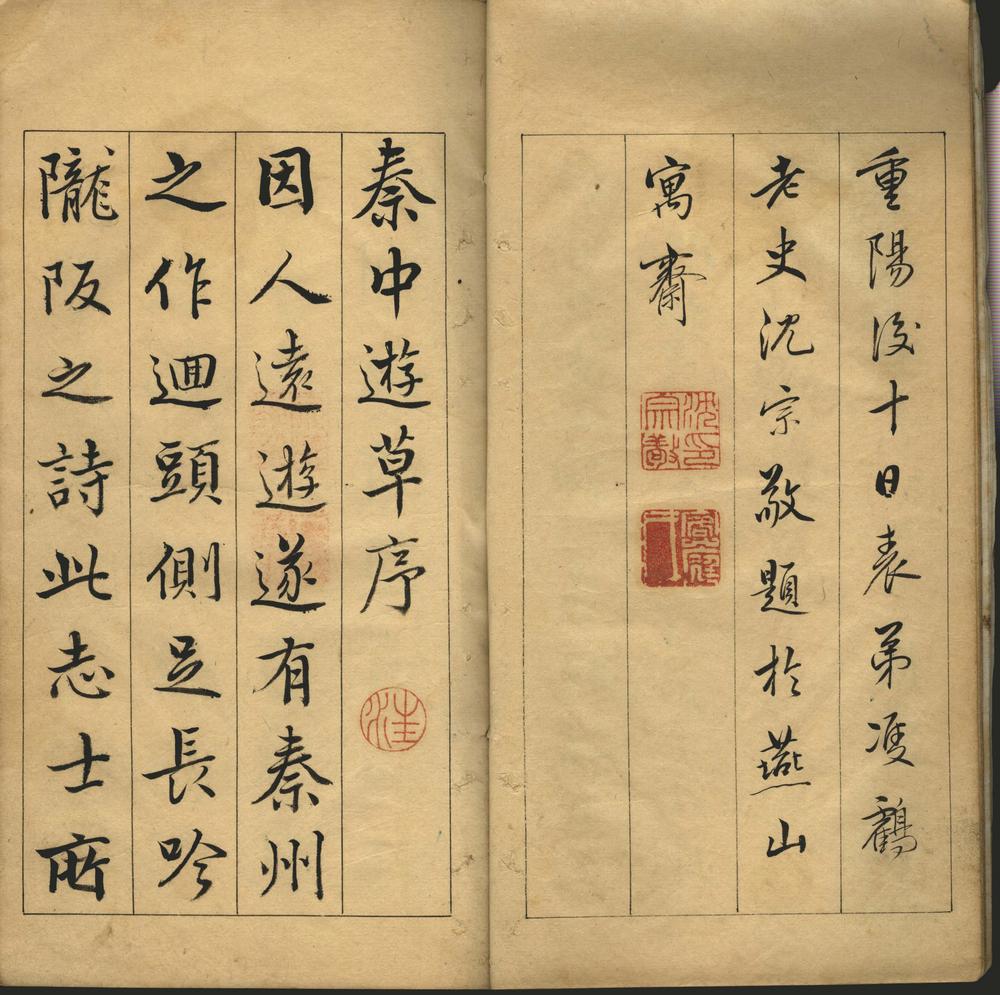 重陽後十日表弟雙鶴
老史沈宗敬題於燕山
寓齋
沈印宗敬
秦中遊草序
因人遠遊遂有秦州
之作迴頭側足長吟
隴阪之詩此志士所